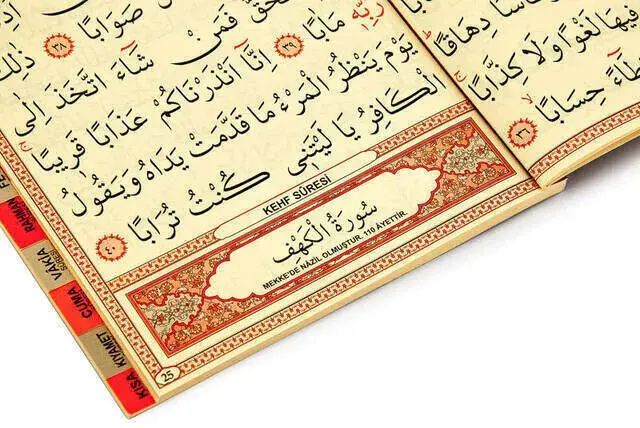 صَوَابًا ٣٨ ذٰلِكَ
الْحَقُّ فَمَنْ شَٓاءَ اتَّخَذَ اِلٰى
رَبِّه۪ مَاٰبًا ٣٩ اِنَّٓا اَنْذَرْنَاكُمْ عَذَابًا قَر۪يبًا
يَوْمَ يَنْظُرُ الْمَرْءُ مَا قَدَّمَتْ يَدَاهُ وَيَقُولُ
الْكَافِرُ يَا لَيْتَن۪ى كُنْتُ تُرَابًا ٤٠
KEHF SÛRESİ
سُورَةُ الْكَهْفِ
MEKKE'DE NAZİL OLMUŞTUR. 110 ÂYETTİR.
25
دِهَاقًا
ف۪يهَا لَغْوًا وَلَا كِذَّابًا
حِسَابًا ٣٦
RAHMAN
VAKIA
SÛRESİ
CUMA
KIYAMET
KISA